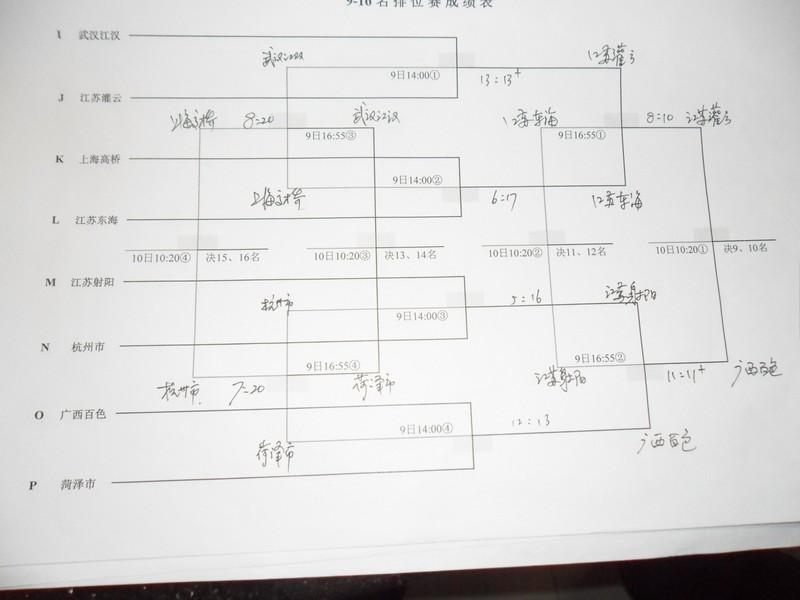 9-16名排位赛成绩表
I 武汉江汉
武汉江汉
江苏灌云
9日14:00①
13:13+
J 江苏灌云
上海高桥 8=20
武汉江汉
江苏东海
8=10 江苏灌云
9日16:55③
9日16:55①
K 上海高桥
9日14:00②
上海高桥
6=17
江苏东海
L 江苏东海
10日10:20④ 决15、16名
10日10:20③ 决13、14名
10日10:20② 决11、12名
10日10:20① 决9、10名
M 江苏射阳
杭州市
5=16
江苏射阳
9日14:00③
N 杭州市
9日16:55④
9日16:55②
杭州市 7=20
菏泽市
江苏射阳
11=11+
广西百色
O 广西百色
9日14:00④
12:13
菏泽市
广西百色
P 菏泽市